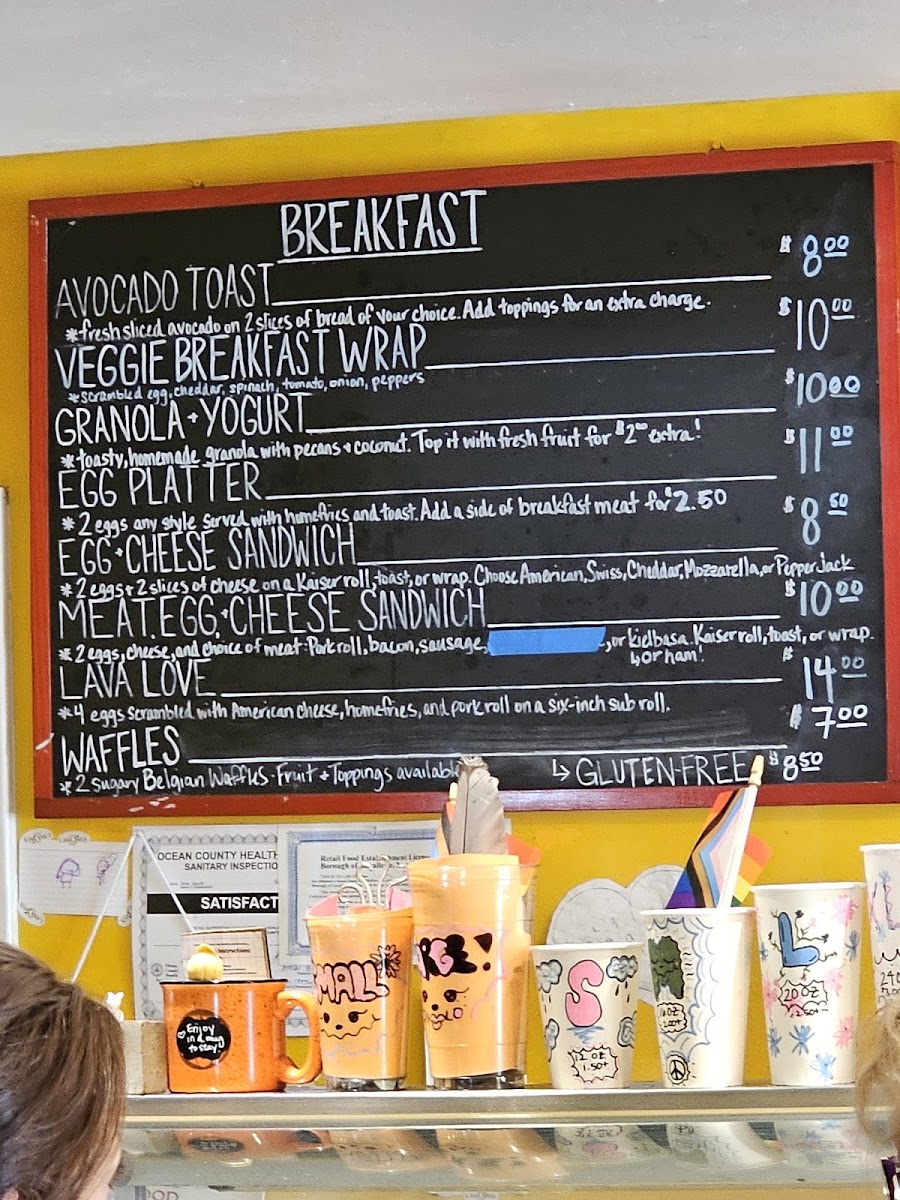 BREAKFAST
AVOCADO TOAST $8.00
*fresh sliced avocado on 2 slices of bread of your choice. Add toppings for an extra charge.
VEGGIE BREAKFAST WRAP $10.00
*scrambled egg, cheddar, spinach, tomato, onion, peppers
GRANOLA + YOGURT $10.00
*toasty, homemade granola with pecans + coconut. Top it with fresh fruit for $2.00 extra!
EGG PLATTER $11.00
*2 eggs any style served with homefries and toast. Add a side of breakfast meat for $2.50
EGG + CHEESE SANDWICH $8.50
*2 eggs + 2 slices of cheese on a Kaiser roll, toast, or wrap. Choose American, Swiss, Cheddar, Mozzarella, or Pepper Jack
MEAT, EGG, + CHEESE SANDWICH $10.00
*2 eggs, cheese, and choice of meat: Pork roll, bacon, sausage, , or kielbasa. Kaiser roll, toast, or wrap.
↳ or ham!
LAVA LOVE $14.00
*4 eggs scrambled with American cheese, homefries, and pork roll on a six-inch sub roll.
WAFFLES $7.00
*2 sugary Belgian Waffles. Fruit + Toppings available
↳ GLUTEN-FREE $8.50
OCEAN COUNTY HEALTH
SANITARY INSPECTIO
SATISFACT
Retail Food Establishment License
Borough of
Enjoy
in a mug
to stay!
SMALL
S
L
20 OZ
16 OZ